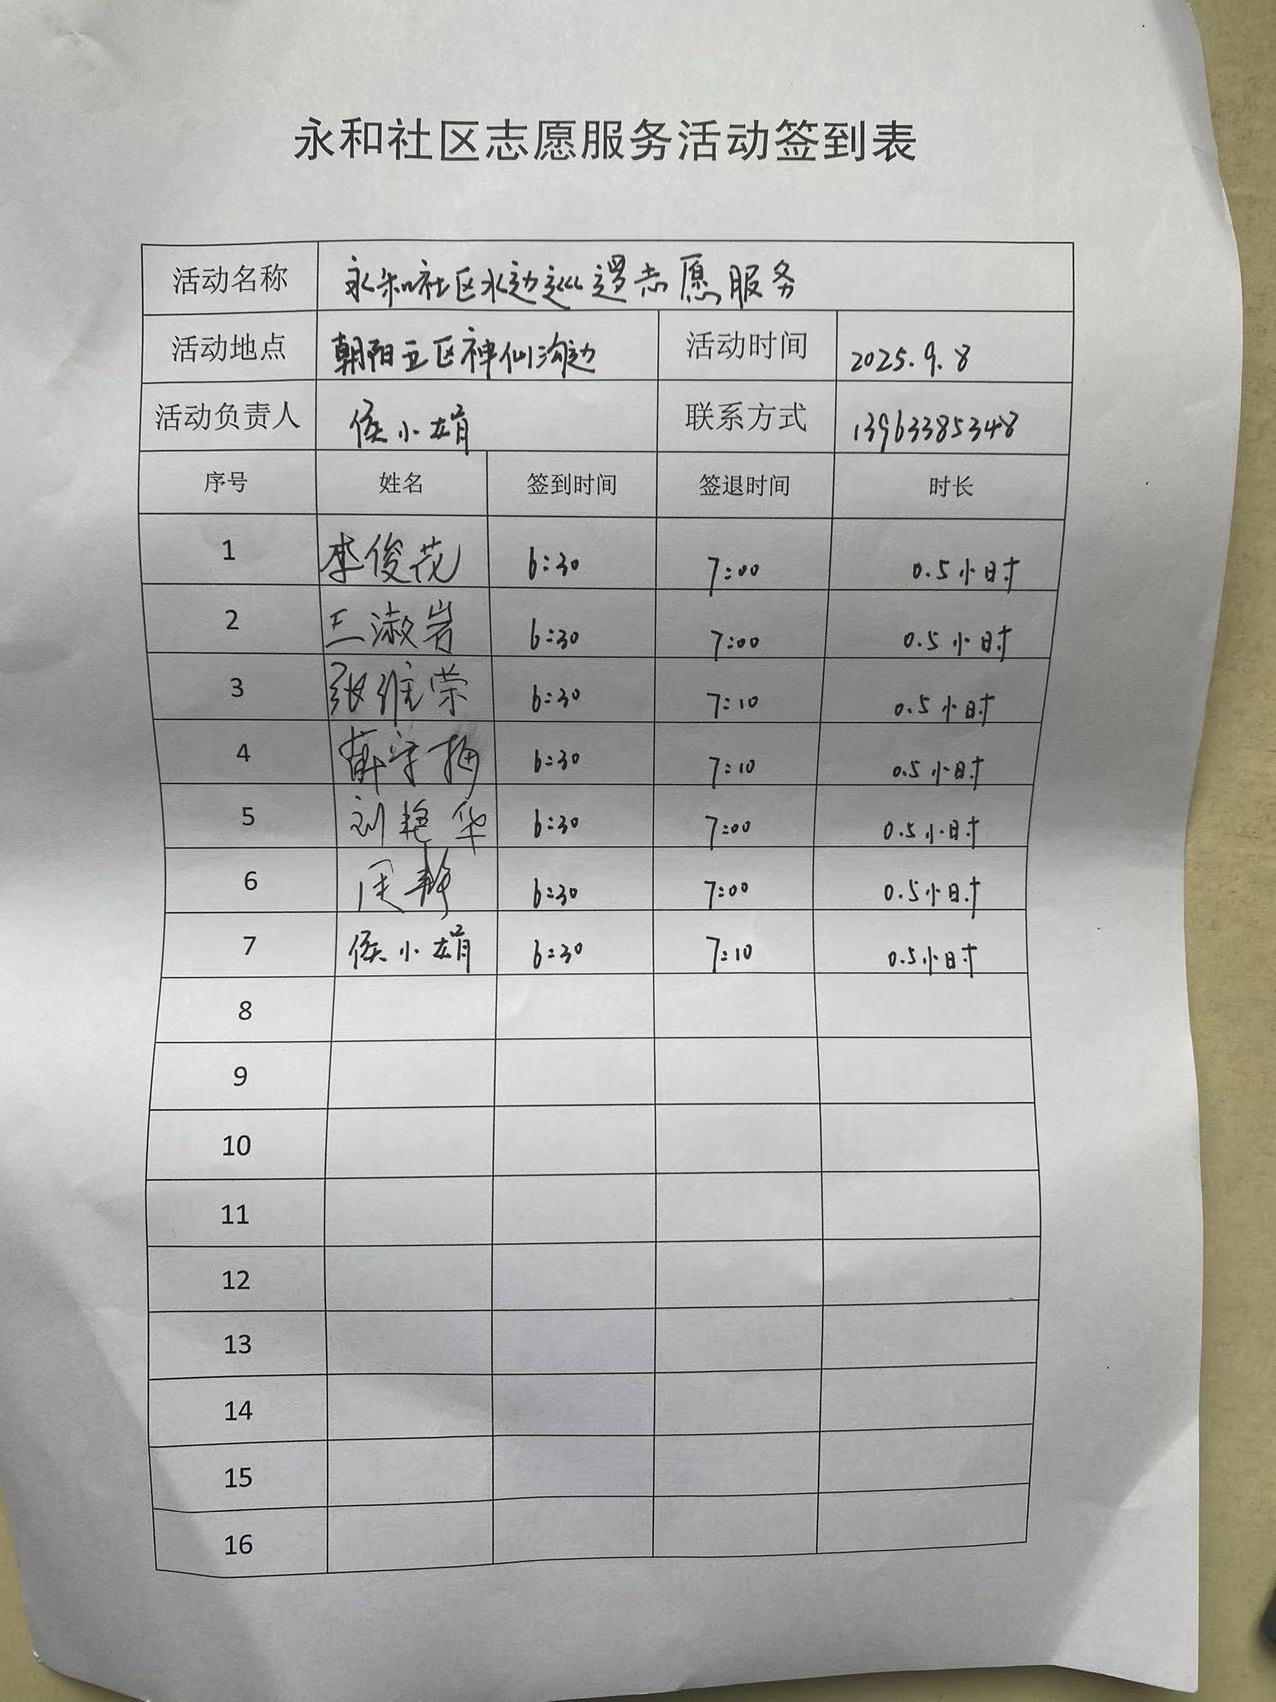 永和社区志愿服务活动签到表
活动名称 永和社区水边巡逻志愿服务
活动地点 朝阳五区神仙沟边 活动时间 2025.9.8
活动负责人 侯小娟 联系方式 13963385348
序号 姓名 签到时间 签退时间 时长
1 李俊花 6:30 7:00 0.5小时
2 王淑岩 6:30 7:00 0.5小时
3 张维荣 6:30 7:10 0.5小时
4 薛守梅 6:30 7:10 0.5小时
5 刘艳华 6:30 7:00 0.5小时
6 周静 6:30 7:00 0.5小时
7 侯小娟 6:30 7:10 0.5小时
8
9
10
11
12
13
14
15
16